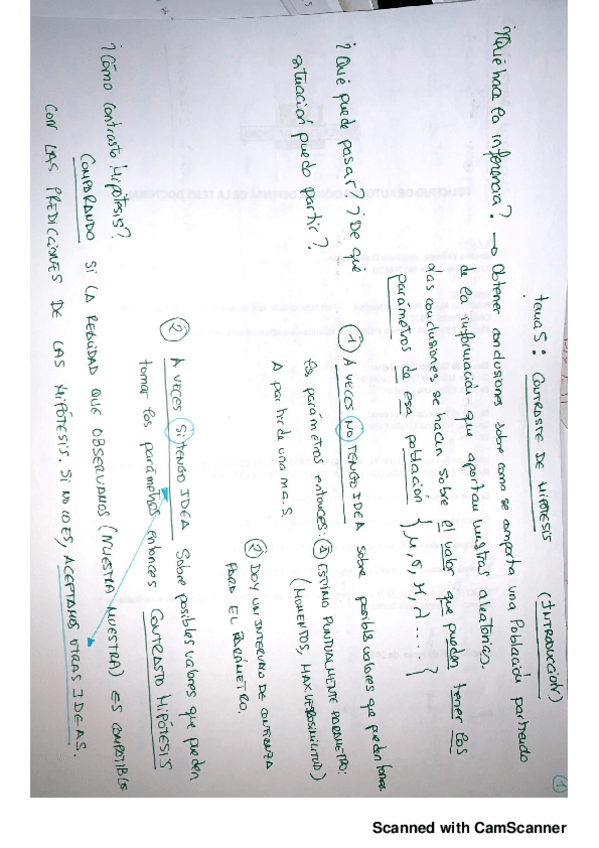 1
Tema 5: CONTRASTE DE HIPÓTESIS (INTRODUCCIÓN)
¿Qué hace la inferencia? → Obtener conclusiones sobre como se comporta una Población partiendo
de la información que aportan muestras aleatorias.
las conclusiones se hacen sobre el valor que pueden tener los
parámetros de esa población {μ, σ, Π, λ .... }
¿Qué puede pasar? ¿De qué
situación puedo partir?
① A VECES NO TENGO IDEA sobre posibles valores que pueden tomar
los parámetros entonces: ① ESTIMO PUNTUALMENTE PARÁMETRO:
A partir de una m.a.s (MOMENTOS, MAX VEROSIMILITUD)
② DOY UN INTERVALO DE CONFIANZA
PARA EL PARÁMETRO.
② A VECES SÍ TENGO IDEA sobre posibles valores que pueden
tomar los parámetros entonces CONTRASTO HIPÓTESIS
¿Cómo contrasto Hipótesis?
COMPARANDO SI LA REALIDAD QUE OBSERVAMOS (NUESTRA MUESTRA) ES COMPATIBLE
CON LAS PREDICCIONES DE LAS HIPÓTESIS. SI NO LO ES, ACEPTAMOS OTRAS IDEAS.
Scanned with CamScanner